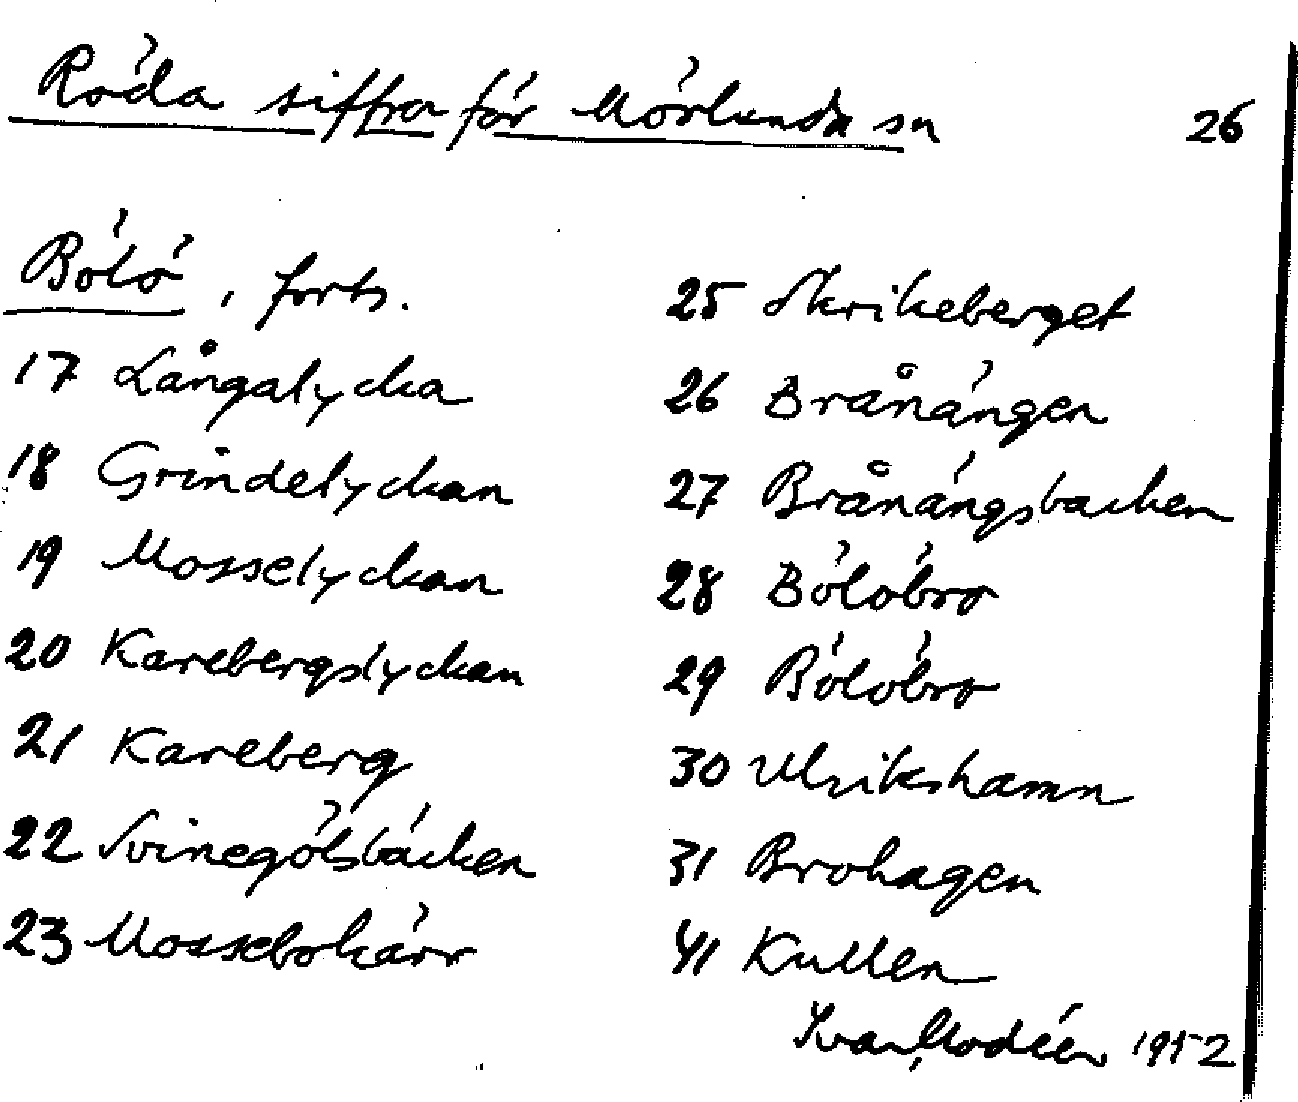 Röda siffror för Mörlunda sn
26
Bölö, forts.
17 Långalycka
18 Grindelyckan
19 Mosselyckan
20 Karebergslyckan
21 Kareberg
22 Svinegölsbäcken
23 Mossebokärr
25 Skrikeberget
26 Brånängen
27 Brånängsbacken
28 Bölöbro
29 Bölöbro
30 Ulrikshamn
31 Brohagen
41 Kullen
Ivar Modéer 1952